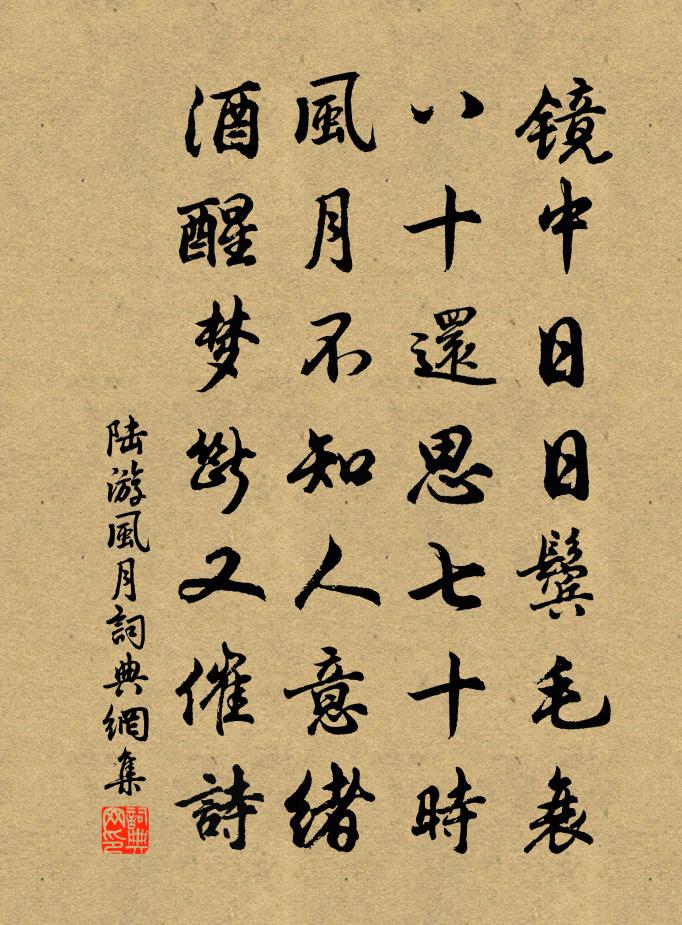 镜中日日鬓毛衰
八十還思七十時
風月不知人意緒
酒醒梦斷又催詩
陆游風月詞典網集
詞典
网印